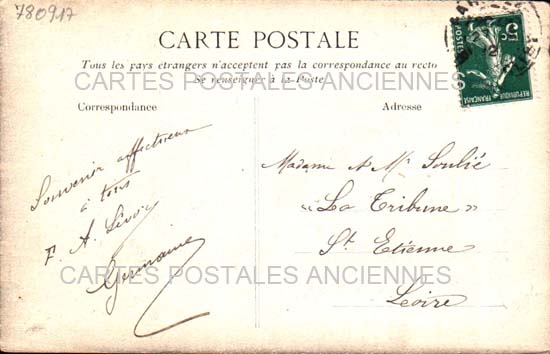 780917
CARTE POSTALE
Tous les pays étrangers n'acceptent pas la correspondance au recto
CARTES POSTALES ANCIENNES
Se renseigner à la Poste
Correspondance
Adresse
5c
POSTES
REPUBLIQUE FRANÇAISE
Souvenir affectueux
à tous
F. A.
Germaine
Madame & Mr Soulié
"La Tribune"
St Etienne
CARTES POSTALES ANCIENNES
Loire